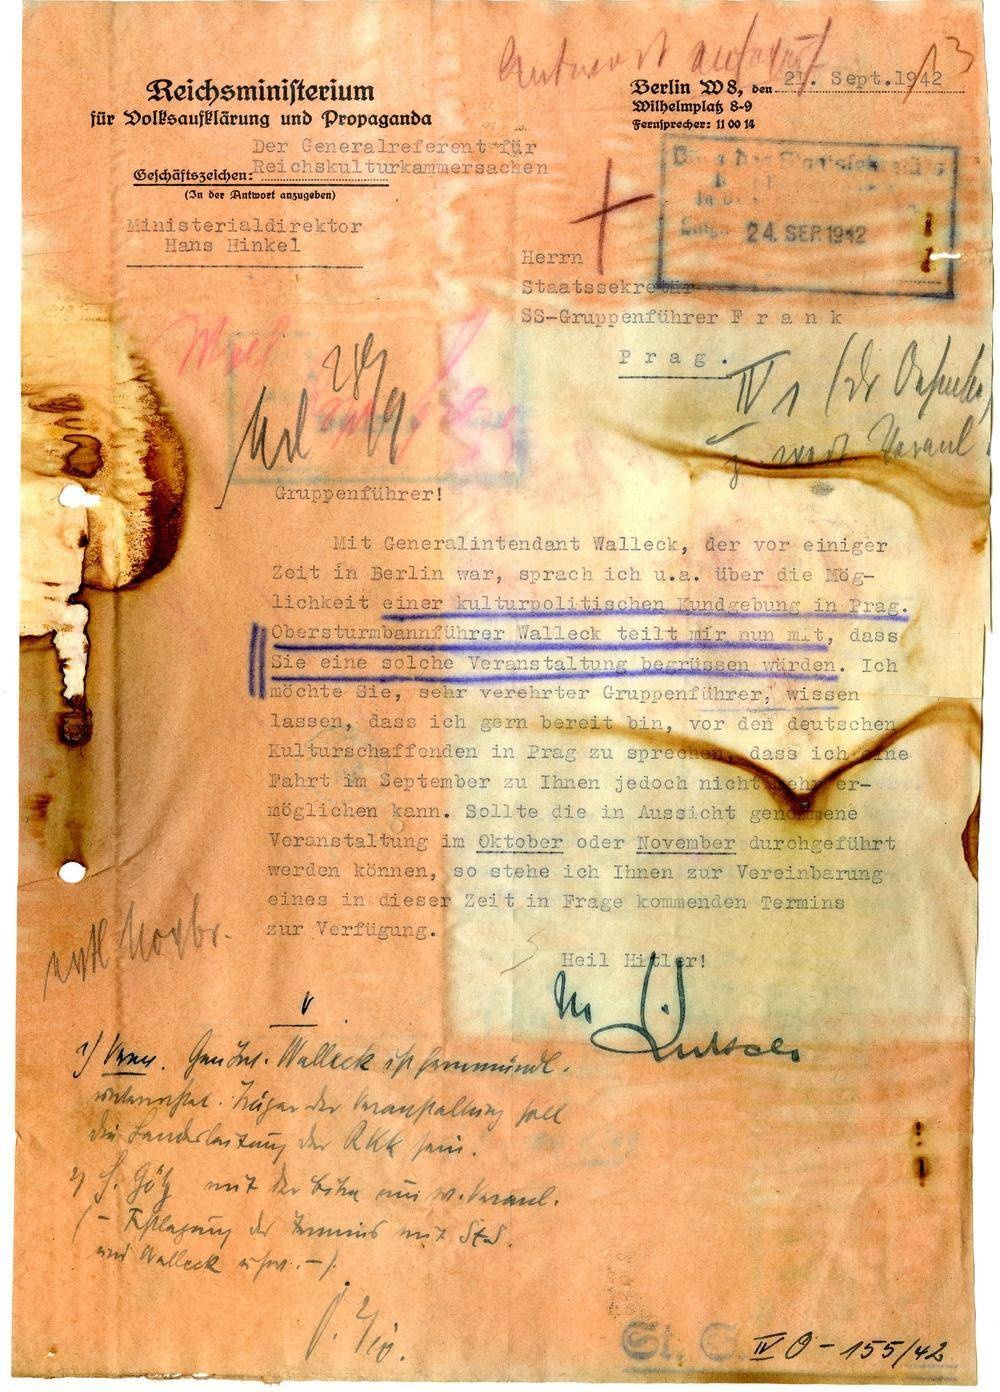 Antwort
Reichsministerium
für Volksaufklärung und Propaganda
Berlin W8, den 21. Sept.1942
Wilhelmplatz 8-9
Fernsprecher: 11 00 14
Der Generalreferent für
Geschäftszeichen: Reichskulturkammersachen
(In der Antwort anzugeben)
Ministerialdirektor
Hans Hinkel
24. SEP. 1942
Herrn
Staatssekretär
SS-Gruppenführer F r a n k
P r a g .
IV 1 (Dr
Gruppenführer!
Mit Generalintendant Walleck, der vor einiger
Zeit in Berlin war, sprach ich u.a. über die Mög-
lichkeit einer kulturpolitischen Kundgebung in Prag.
Obersturmbannführer Walleck teilt mir nun mit, dass
Sie eine solche Veranstaltung begrüssen würden. Ich
möchte Sie, sehr verehrter Gruppenführer, wissen
lassen, dass ich gern bereit bin, vor den deutschen
Kulturschaffenden in Prag zu sprechen, dass ich eine
Fahrt im September zu Ihnen jedoch nicht mehr er-
möglichen kann. Sollte die in Aussicht genommene
Veranstaltung im Oktober oder November durchgeführt
werden können, so stehe ich Ihnen zur Vereinbarung
eines in dieser Zeit in Frage kommenden Termins
zur Verfügung.
Heil Hitler!
1) Verm. Gen Int. Walleck ist fernmündl.
unterrichtet. Träger der Veranstaltung soll
die Landesleitung der RKK sein.
2) H. Götz mit der Bitte um w. Veranl.
(- Festlegung des Termins mit StS.
und Walleck usw. -).
St. S. IV O - 155/42